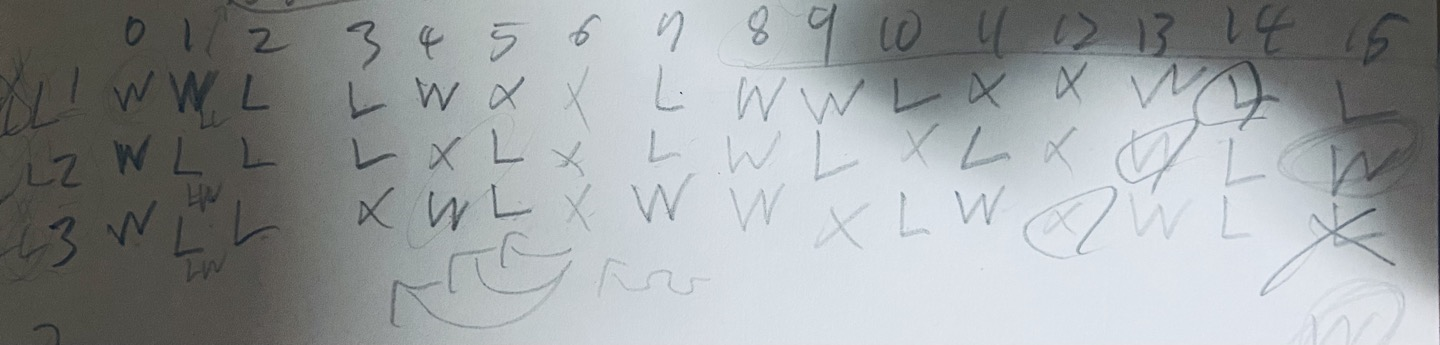 0 1 2 3 4 5 6 7 8 9 10 11 12 13 14 15
L1 W W L L W X X L W W L X X W L L
L2 W L L L X L X L W L X L X W L W
L3 W L L X W L X W W X L W X W L X
LW
W